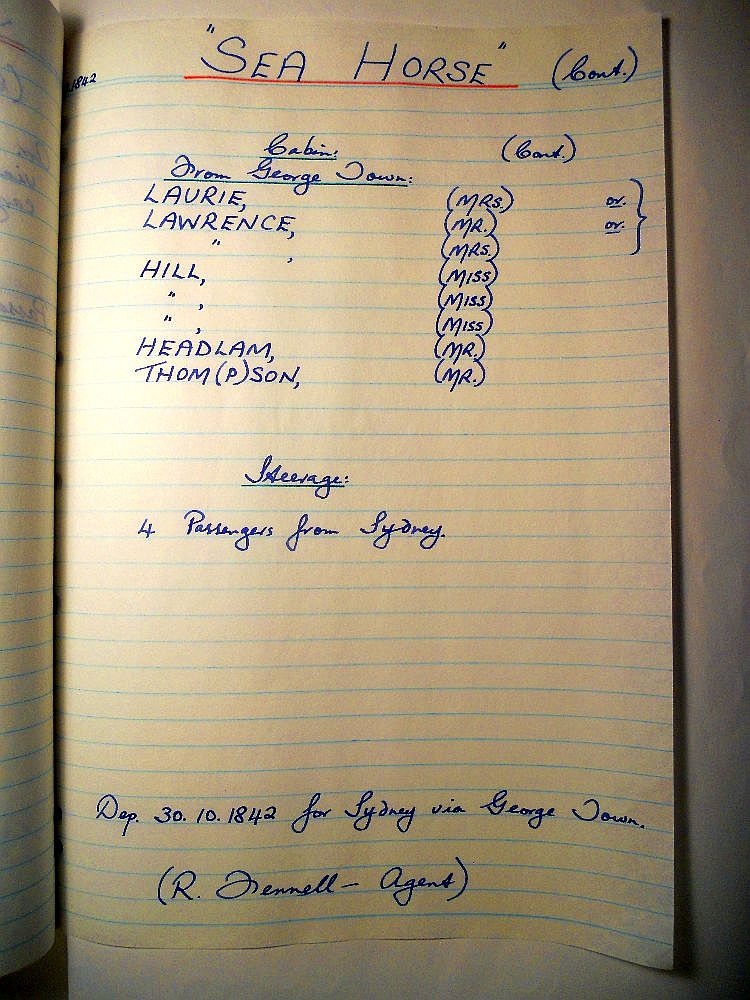 "SEA HORSE" (Cont.)
1842
Cabin: (Cont.)
From George Town:
LAURIE, (MRS.) or.
LAWRENCE, (MR.) or.
" , (MRS.)
HILL, (MISS)
" , (MISS)
" , (MISS)
HEADLAM, (MR.)
THOM(P)SON, (MR.)
Steerage:
4 Passengers from Sydney.
Dep. 30.10.1842 for Sydney via George Town.
(R. Fennell – Agent)